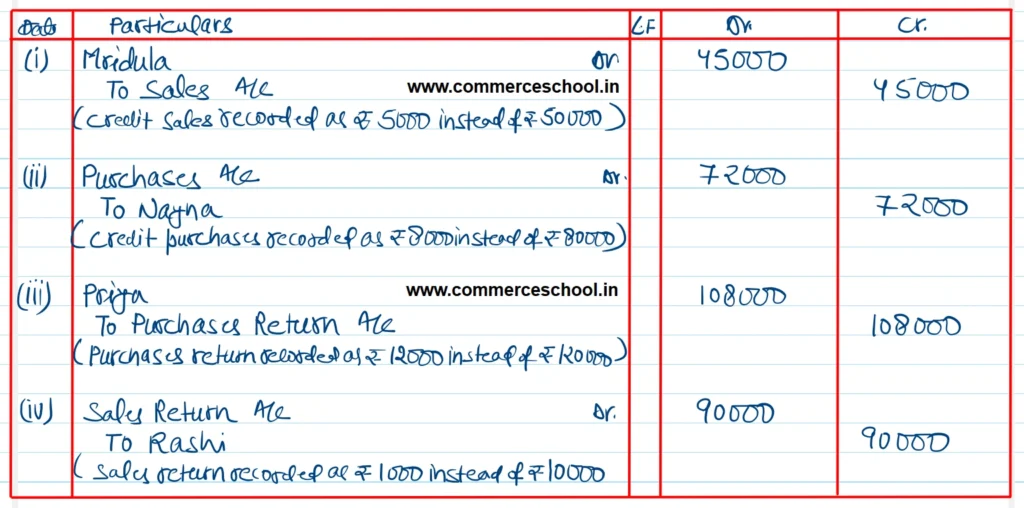 Date Particulars L.F Dr. Cr.
(i) Mridula Dr 45000
To Sales A/c www.commerceschool.in 45000
(credit sales recorded as ₹ 5000 instead of ₹ 50000)
(ii) Purchases A/c Dr. 72000
To Nayna 72000
(credit purchases recorded as ₹ 8000 instead of ₹ 80000)
(iii) Priya www.commerceschool.in 108000
To Purchases Return A/c 108000
(Purchases return recorded as ₹ 12000 instead of ₹ 120000)
(iv) Sales Return A/c Dr. 90000
To Rashi 90000
(Sales return recorded as ₹ 1000 instead of ₹ 10000